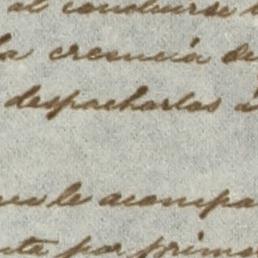 al concluirse
la creencia de
despacharlos á
le acompa
nta por prime